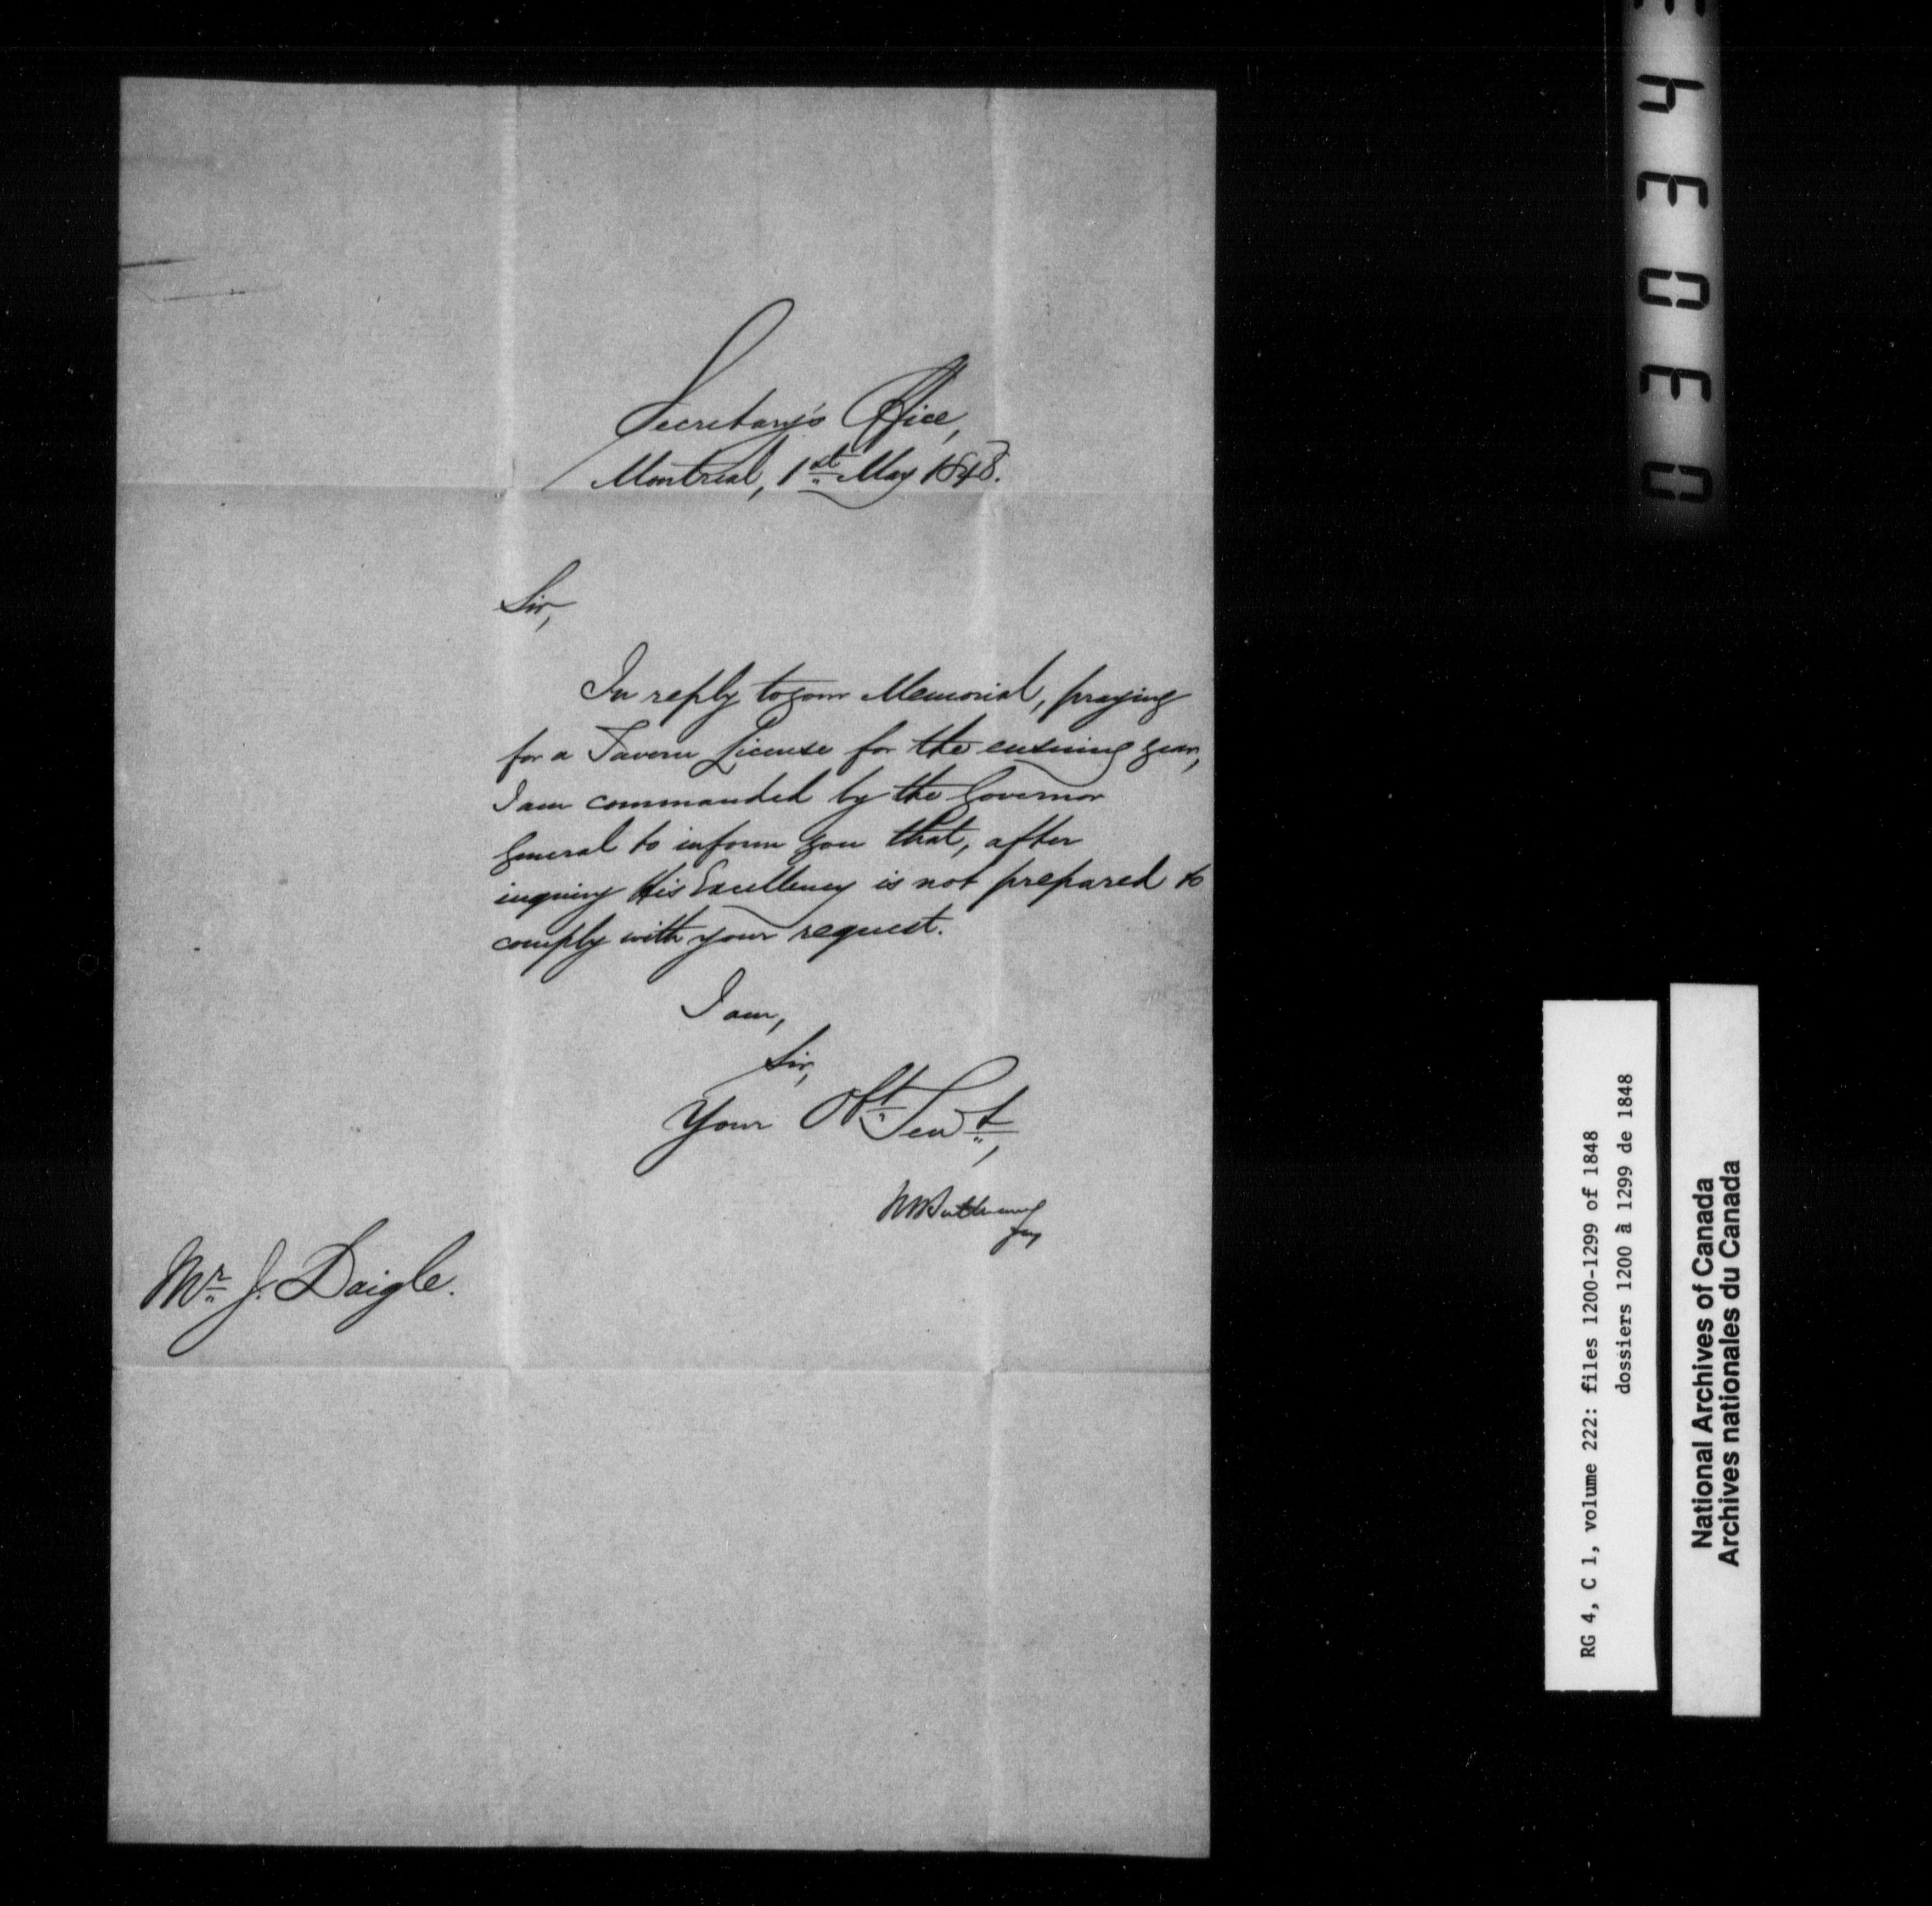 Secretary's Office,
Montreal, 1st May 1848.
Sir,
In reply to your Memorial, praying
for a Tavern License for the ensuing year,
I am commanded by the Governor
General to inform you that, after
inquiry His Excellency is not prepared to
comply with your request.
I am,
Sir,
Your Obt. Servt.,
Mr. J. Daigle.
03034
RG 4, C 1, volume 222: files 1200-1299 of 1848
dossiers 1200 à 1299 de 1848
National Archives of Canada
Archives nationales du Canada